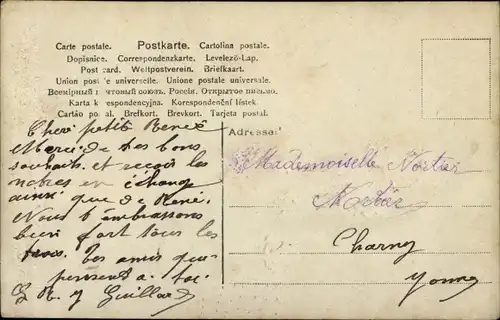 Carte postale. Postkarte. Cartolina postale.
Dopisnice. Correspondenzkarte. Levelező-Lap.
Post card. Weltpostverein. Briefkaart.
Union postale universelle. Unione postale universale.
Всемірный почтовый союзъ. Россія. Открытое письмо.
Karta korespondencyjna. Korespondenční lístek.
Cartão postal. Brefkort. Brevkort. Tarjeta postal.
Cheré petite Renée
Merci de tes bons
souhaits. et reçois les
notres en échange
ainsi que de René.
Nous t'embrassons
bien fort tous les
trois. tes amis qui
pensent a toi
Guillar
Adresse:
Mademoiselle Nortier
Nortier
Charny
Yonne